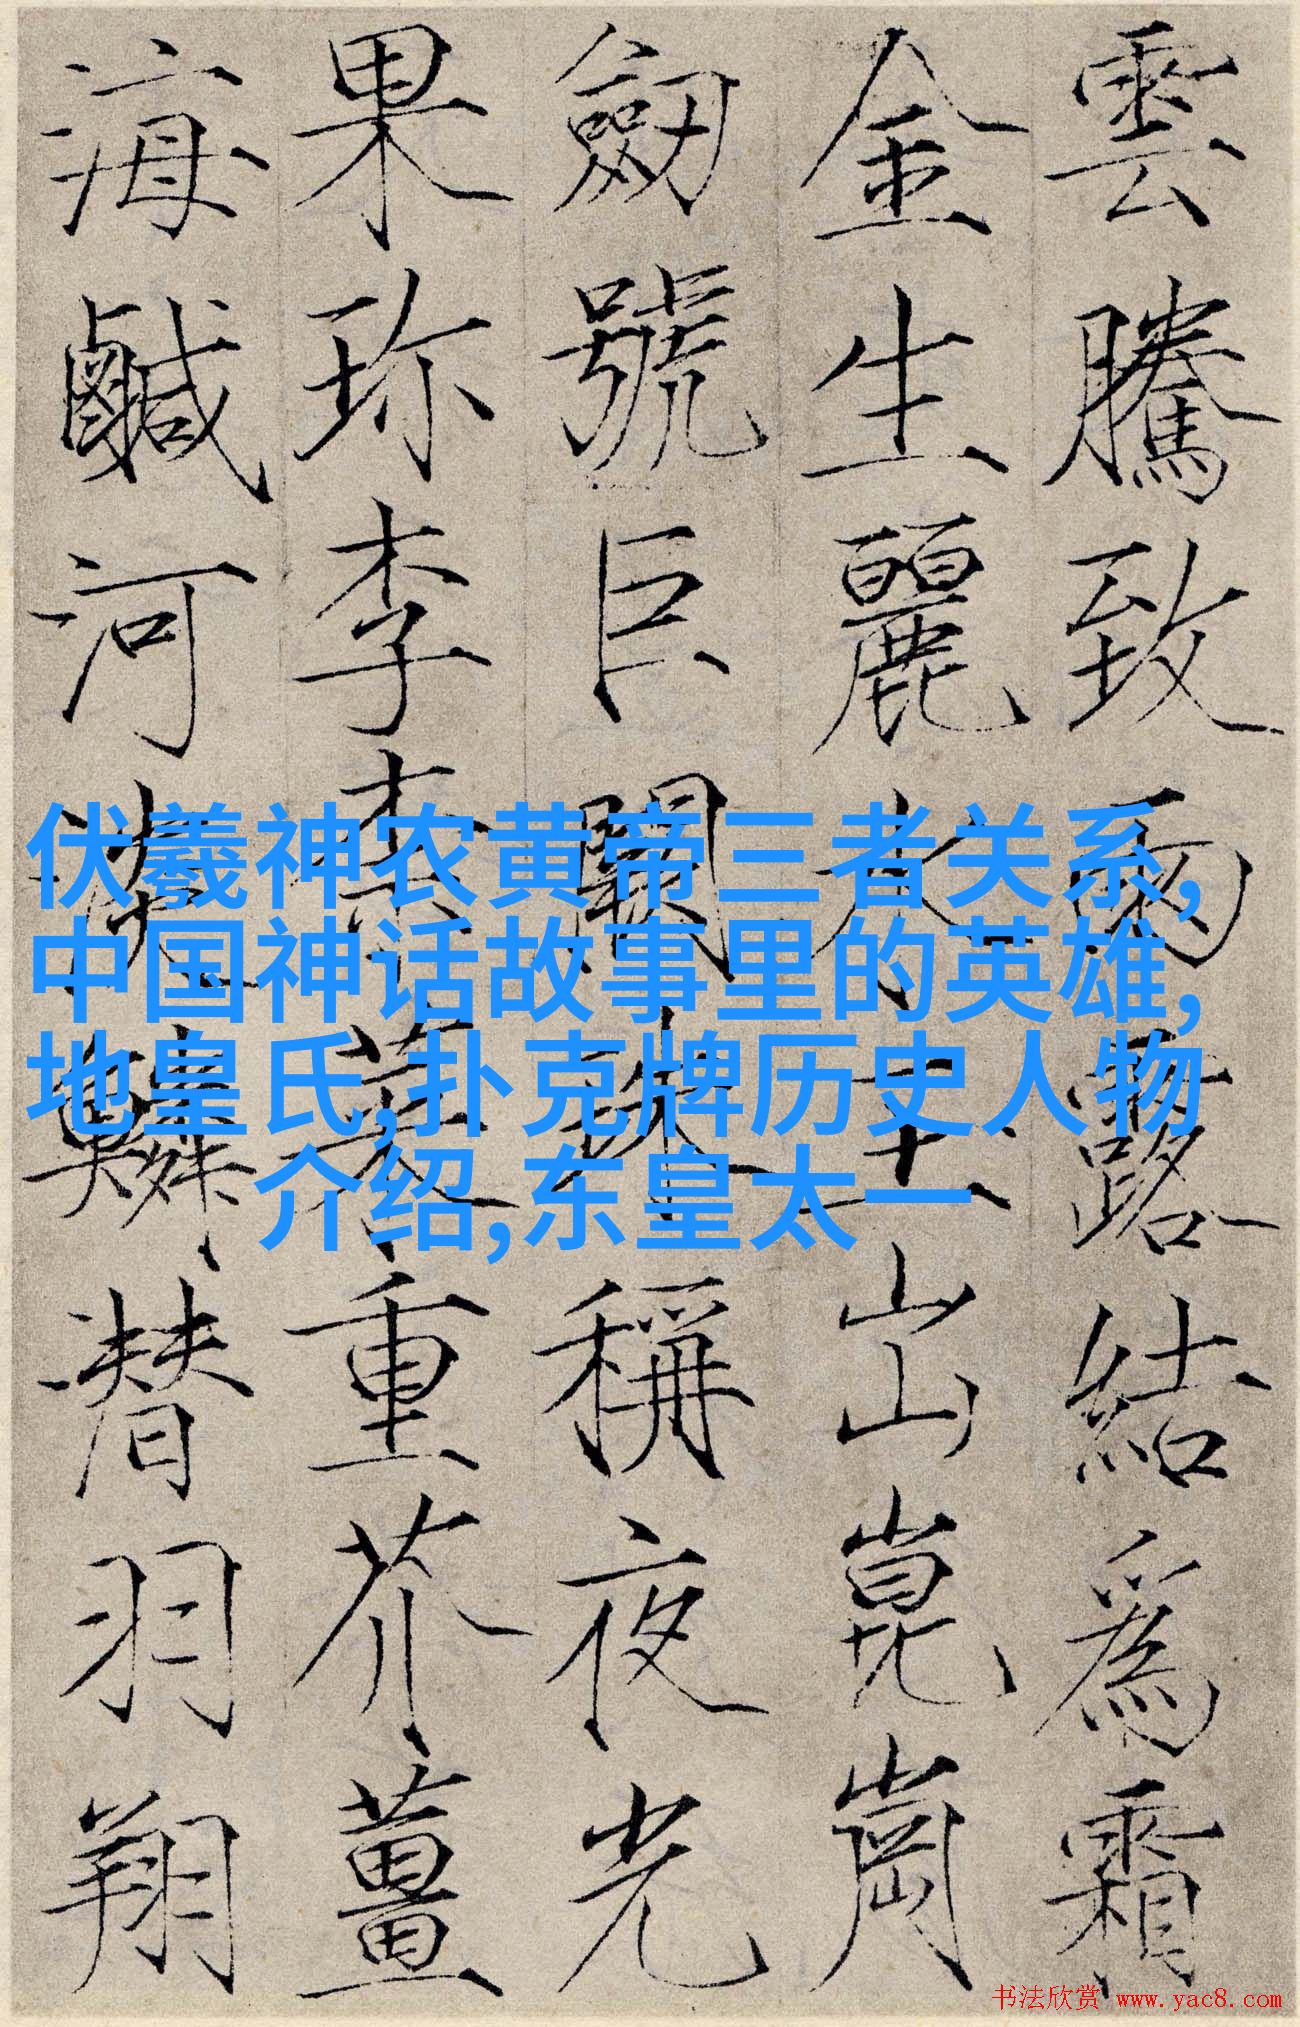 雲騰致雨露結為霜
金生麗水玉出崑崗
劒號巨闕珠稱夜光
果珎李柰菜重芥薑
海鹹河淡鱗潛羽翔
伏羲神农黄帝三者关系,
中国神话故事里的英雄,
地皇氏,扑克牌历史人物
介绍,东皇太一
书法欣赏 www.yac8.com